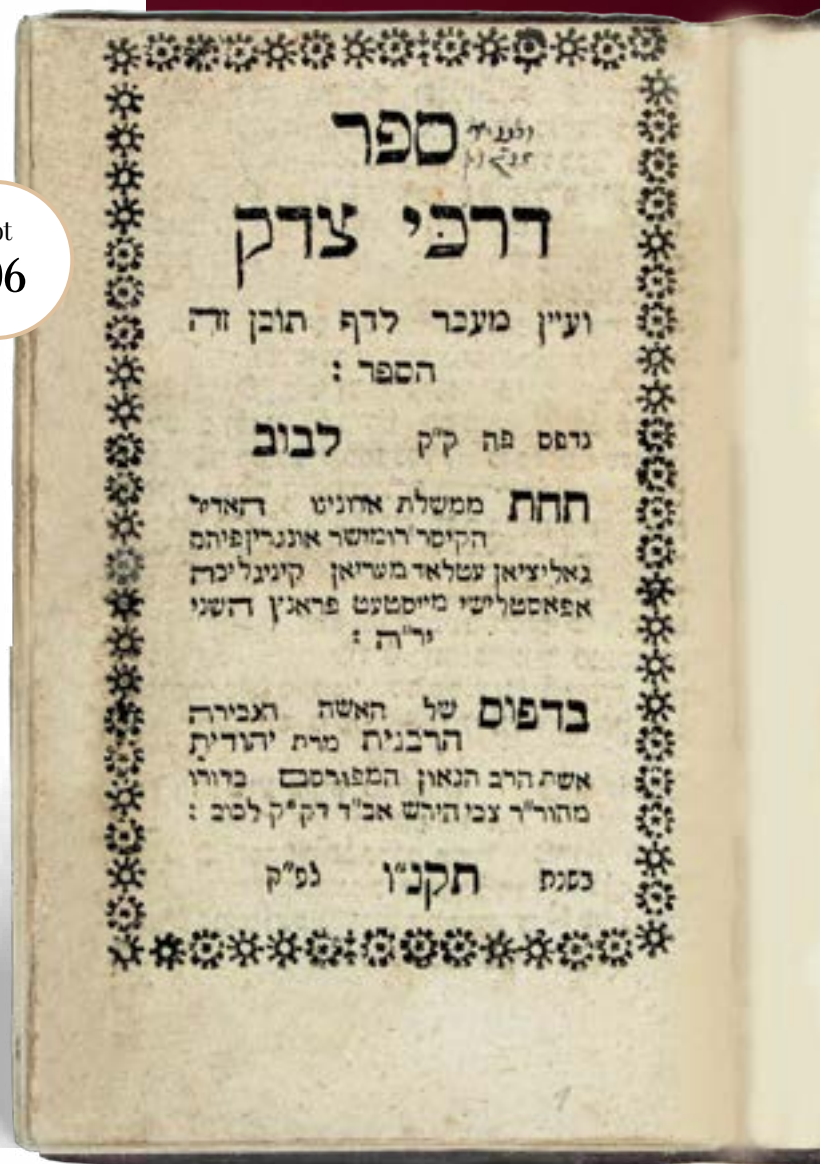 ot
06
ספר
דרכי צדק
ועיין מעבר לדף תוכן זה
הספר :
נדפס פה ק"ק לבוב
תחת ממשלת אדונינו האדיר
הקיסר רומישר אונגרין פיהם
גאליציאן עטלאד מעריאן קיניגליכה
אפאסטלישי מייסטעט פראנץ השני
יר"ה :
בדפוס של האשה הגבירה
הרבנית מרת יהודית
אשת הרב הגאון המפורסם בדורו
מהור"ר צבי הירש אב"ד דק"ק לבוב :
בשנת תקנ"ו לפ"ק